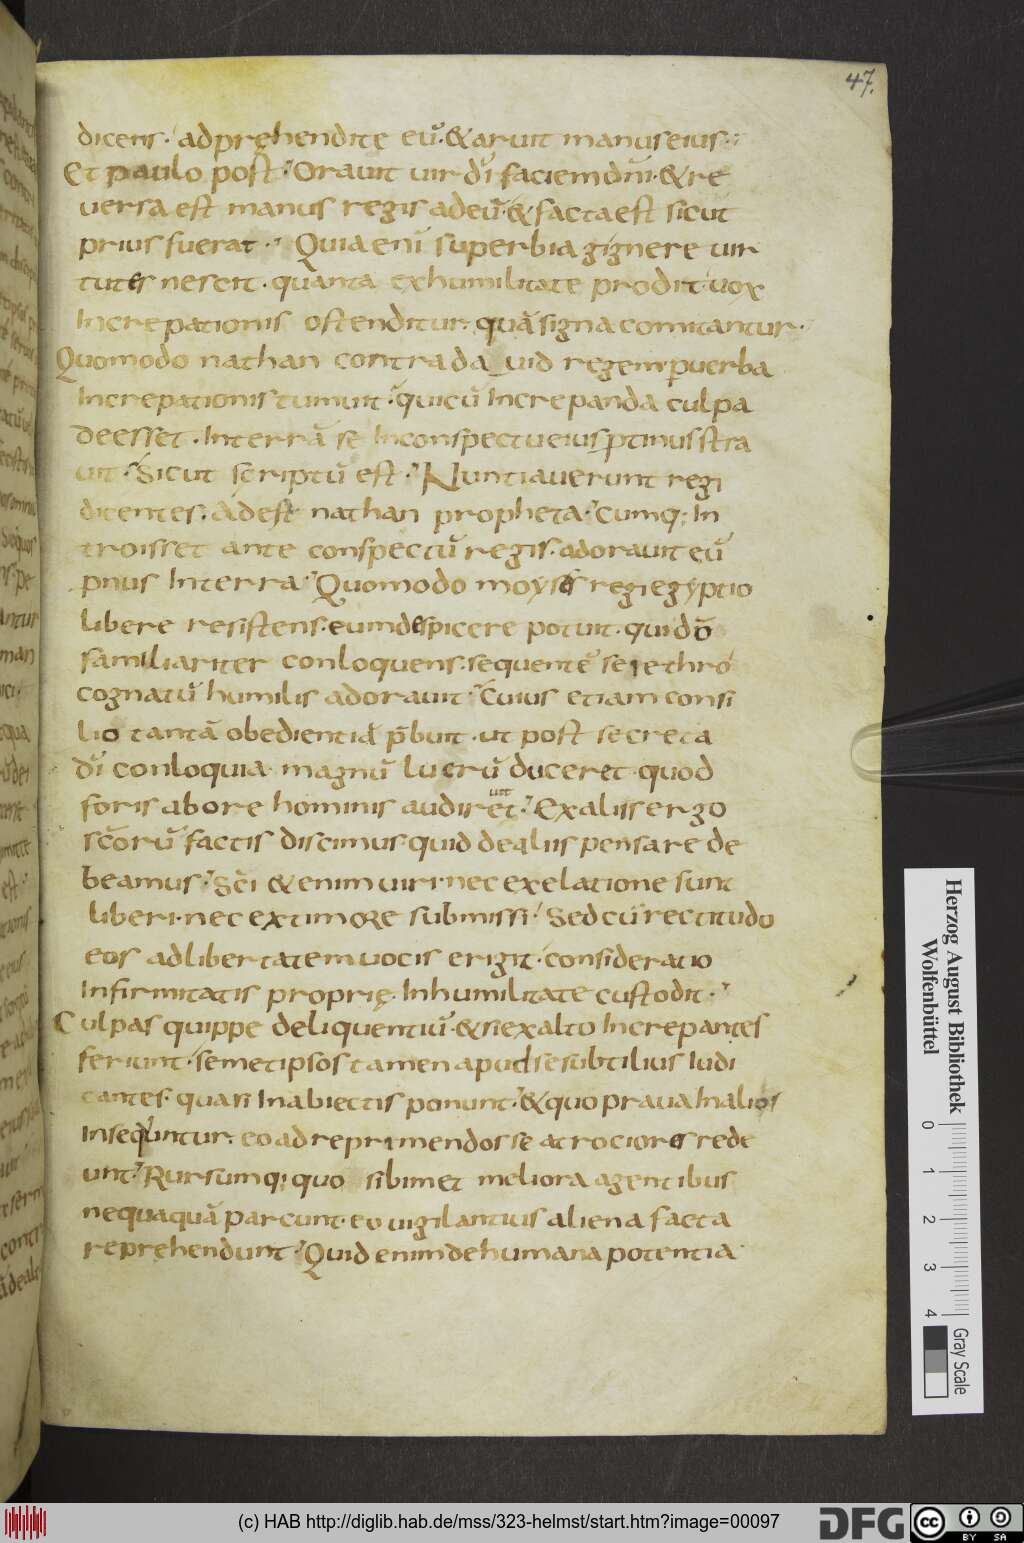 47.
dicens· adprehendite eū· & aruit manus eius·
Et paulo post· Orauit uir dī faciem dnī· & re
uersa est manus regis ad eū· & facta est sicut
prius fuerat· Quia enī superbia gignere uir
tutes nescit· quanta ex humilitate prodiit uox
Increpationis ostenditur· quā signa comitantur·
Quomodo nathan contra dauid regem p uerba
Increpationis tumuit· qui cū Increpanda culpa
deesset· Interrā se Inconspectu eius ptinus stra
uit· Sicut scriptū est· Nuntiauerunt regi
dicentes· Adest nathan propheta· Cumq; In
troisset ante conspectū regis· adorauit eū
pnus Interra· Quomodo moyses regi egyptio
libere resistens· eum despicere potuit· qui dō
familiariter conloquens· sequentē se iethro
cognatū humilis adorauit· Cuius etiam consi
lio tantā obedientiā p̄buit· ut post secreta
dī conloquia magnū lucrū duceret quod
foris abore hominis audiret· Ex aliis ergo
scōrū factis discimus quid de aliis pensare de
beamus· Scī & enim uiri· nec exelatione sunt
liberi· nec ex timore submissi· Sed cū rectitudo
eos ad libertatem uocis erigit· consideratio
Infirmitatis proprię· In humilitate custodit·
Culpas quippe deliquentiū· & si exalto Increpantes
feriunt· semetipsos tamen apud se subtilius Iudi
cantes· quasi In abiectis ponunt· & quo praua In alios
Insequntur· eo ad reprimendos se atrociores rede
unt· Rursumq; quo sibimet meliora agentibus
nequaquā parcunt· eo uigilantius aliena facta
reprehendunt· Quid enim de humana potentia
Herzog August Bibliothek
Wolfenbüttel
0 1 2 3 4
Gray Scale
(c) HAB http://diglib.hab.de/mss/323-helmst/start.htm?image=00097
DFG
cc BY SA